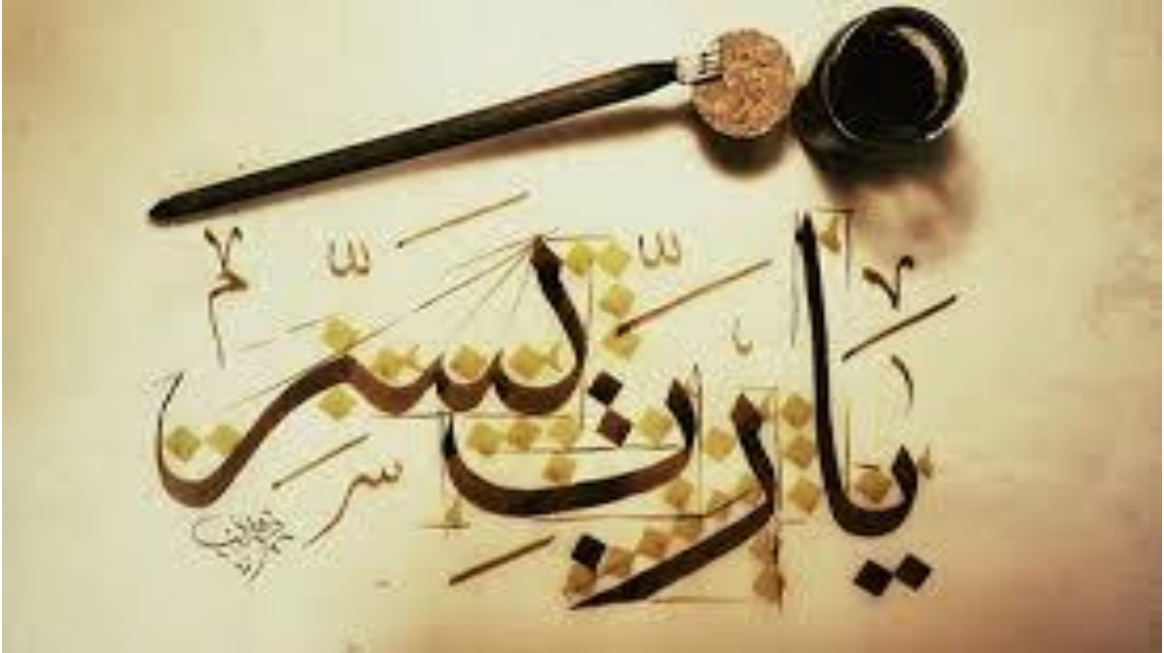 يَا رَبِّ يَسِّر